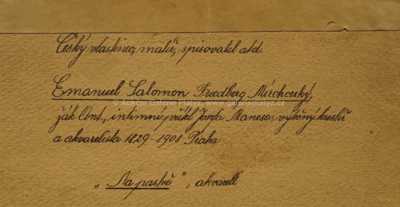 Český vlastinec, malíř, spisovatel atd.
Emanuel Salomon Friedberg Mírohorský,
žák Ant. , intimní přítel Josefa Manesa, výtečný kreslíř
a akvarelista 1829-1908 Praha
„Na pastvě", akvarell